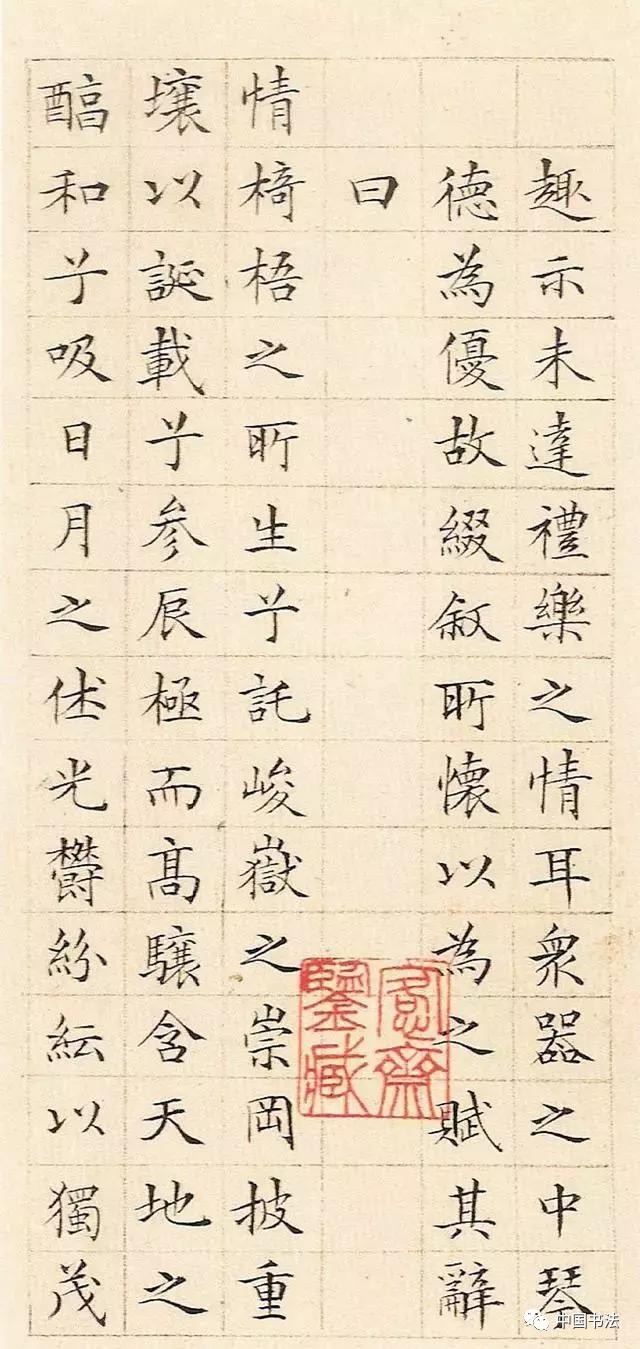 趣示未達禮樂之情耳衆器之中琴
德為優故綴叙所懷以為之賦其辭
曰
情椅梧之所生兮託峻嶽之崇岡披重
壤以誕載兮参辰極而高驤含天地之
醕和兮吸日月之休光鬱紛紜以獨茂
愙齋鑒藏
中国书法